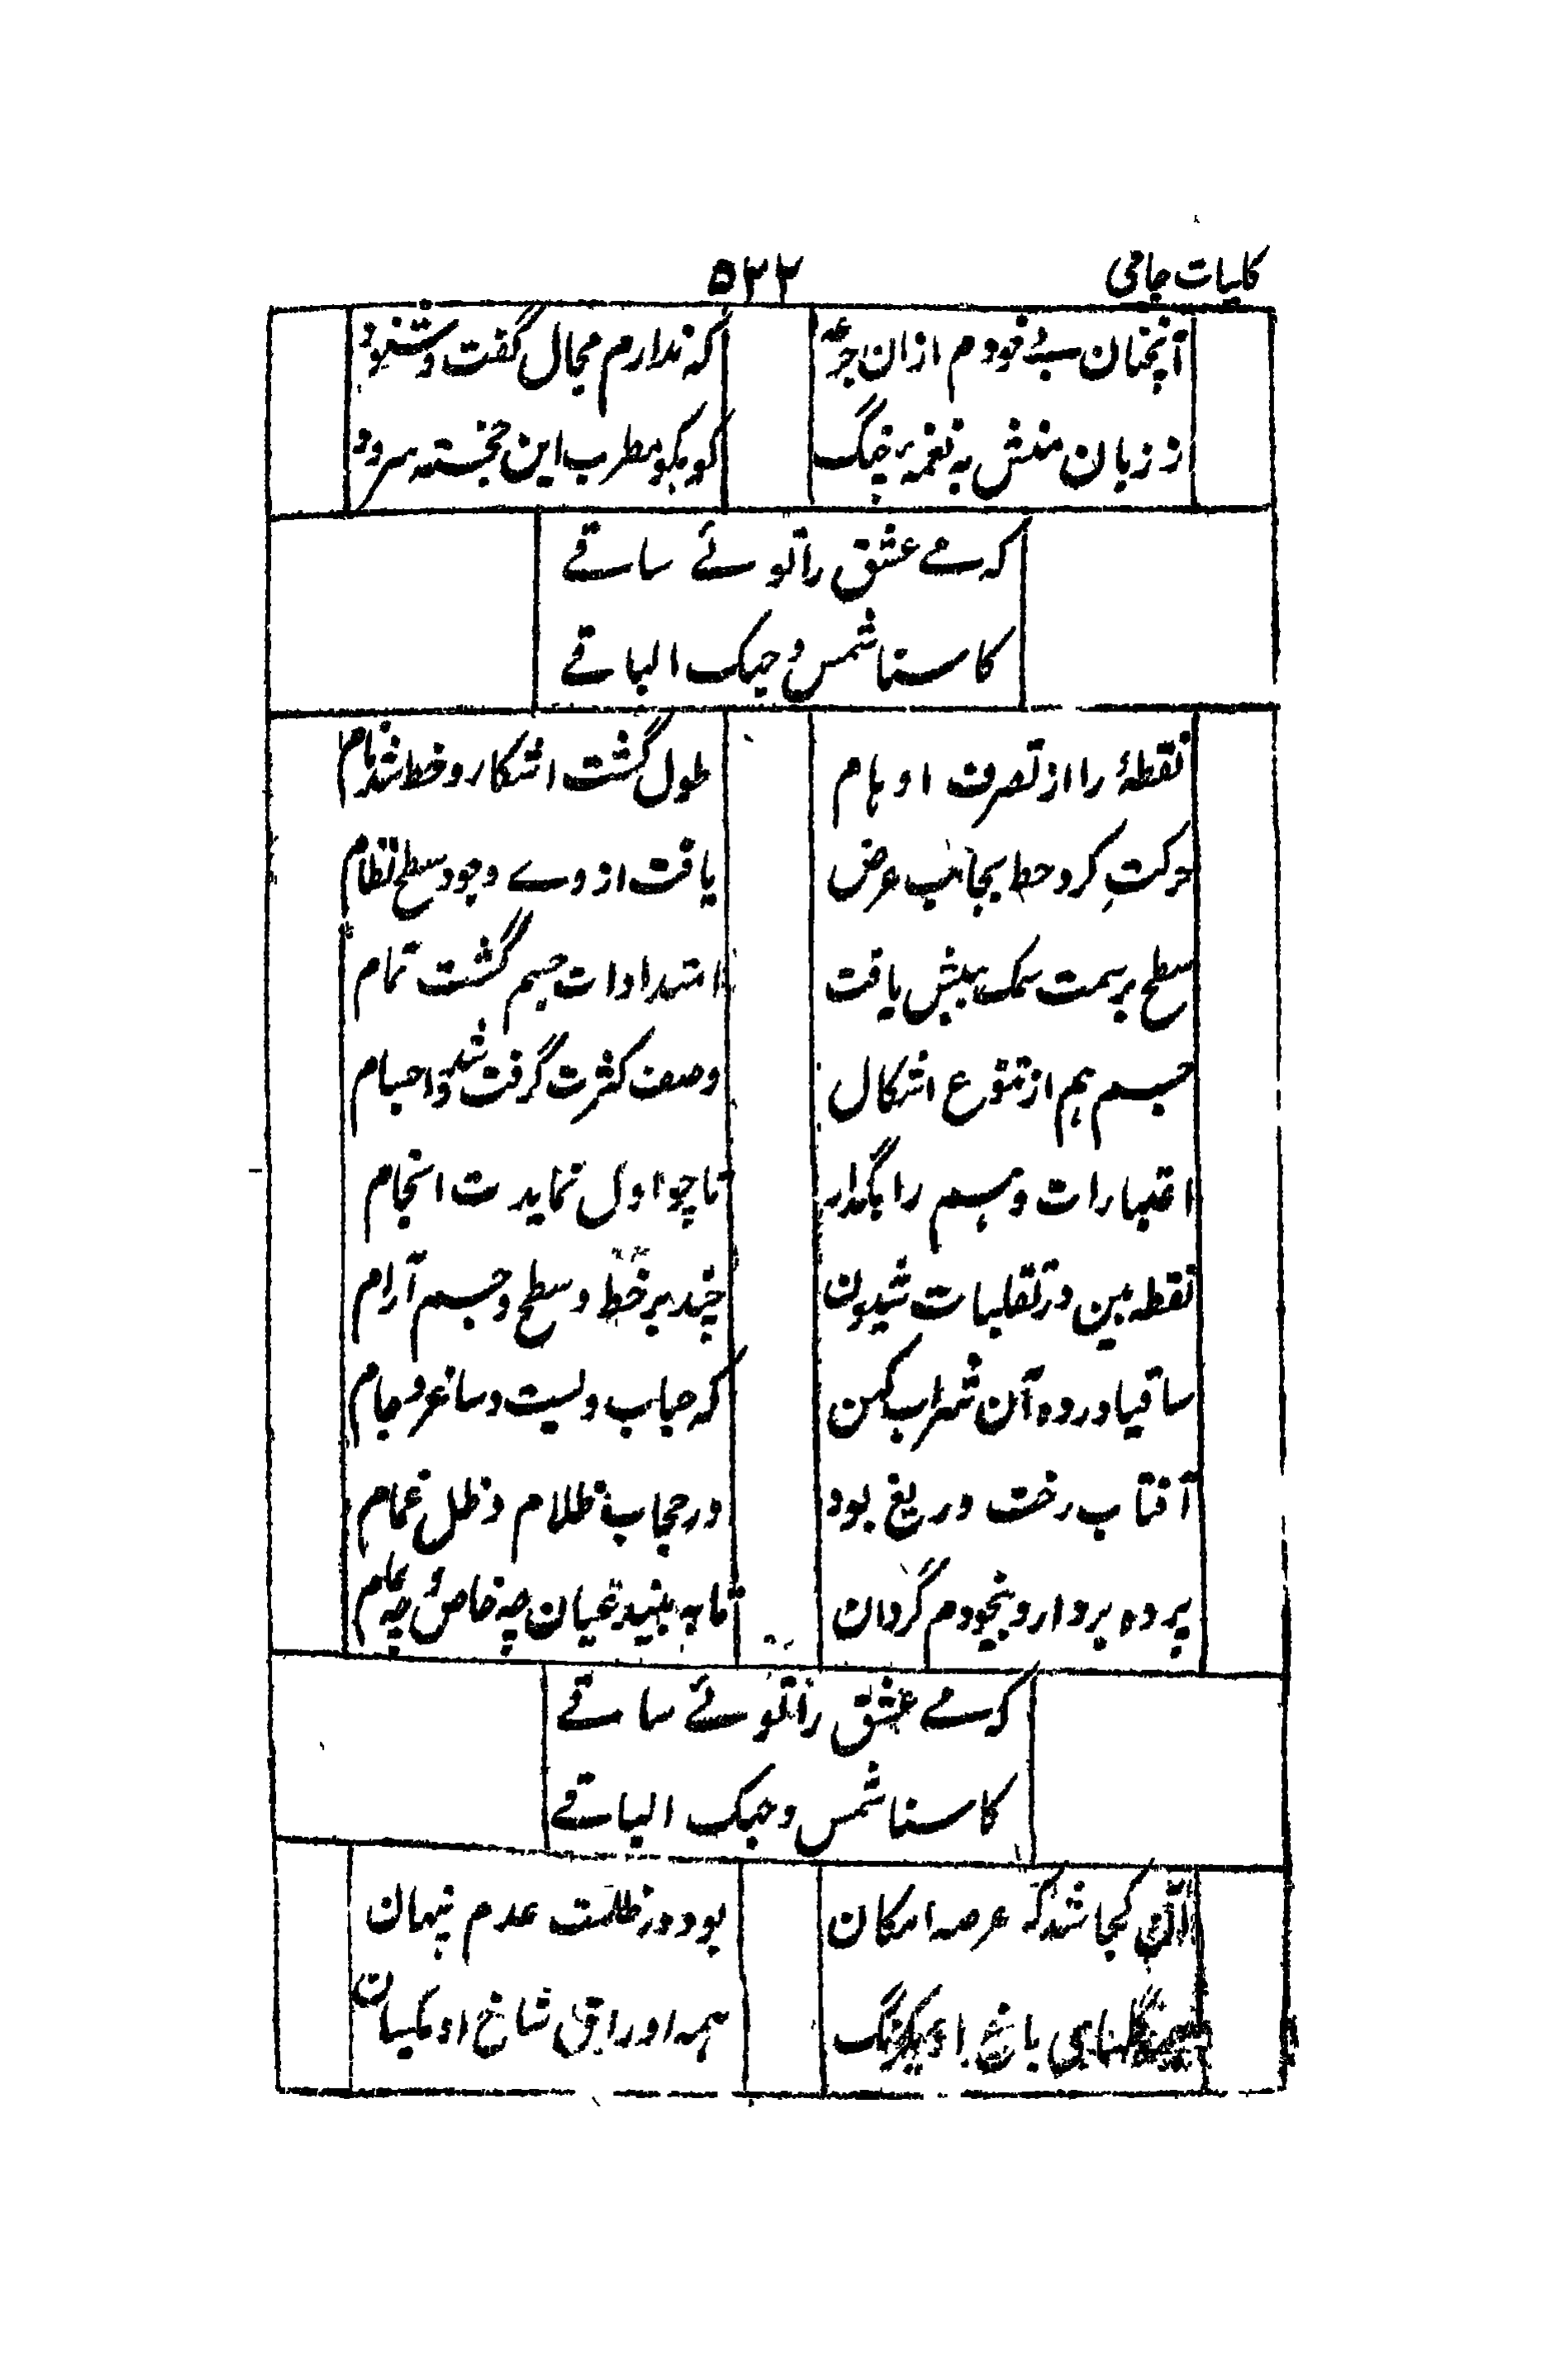 کلیات جامی
۵۳۲
آنچنان بیخودم ازان جرعه
که ندارم مجال گفت و شنود
از زبان منش به نغمه چنگ
گو بگو مطرب این خجسته سرود
که مے عشق را توئے ساقے
کاسنا شمس و جهک الباقے
نقطهٔ را از تصرف اوهام
طول گشت اشکار و خط شد نام
حرکت کرد خط بجانب عرض
یافت از وے وجود سطح نظام
سطح بر سمت سمک جنبش یافت
امتدادات جسم گشت تمام
جسم هم از تنوع اشکال
وصف کثرت گرفت و شد اجسام
اعتبارات وهم را بگذار
تا چو اول نماید ت انجام
نقطه بین در تقلبات شیون
چند بر خط و سطح و جسم آرام
ساقیا در ده آن شراب کهن
که حباب ویست و ساغر و جام
آفتاب رخت دریغ بود
در حجاب ظلام و ظل غمام
پرده بردار و بیخودم گردان
تا به بینید عیان چه خاص و چه عام
که مے عشق را توئے ساقے
کاسنا شمس و جهک الباقے
کجا شد که عرصه امکان
بود در ظلمت عدم پنهان
گلهای باغ با او یکرنگ
همه اوراق شاخ او یکسان